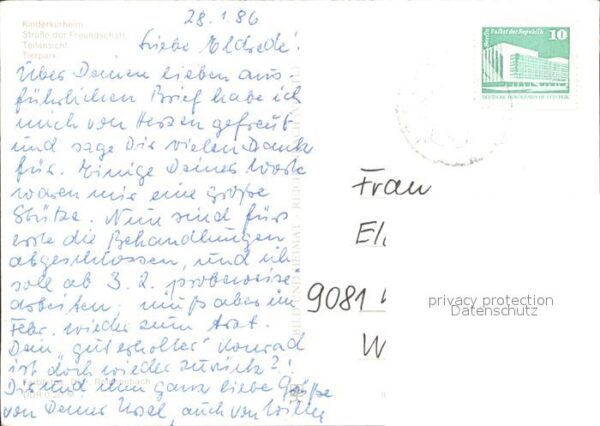 28.1.86
Kinderkurheim
Straße der Freundschaft
Teilansicht
Tierpark
Liebe Elfriede!
Über Deinen lieben aus-
führlichen Brief habe ich
mich von Herzen gefreut
und sage Dir vielen Dank
für. Einige Deiner Worte
waren mir eine große
Stütze. Nun sind fürs
erste die Behandlungen
abgeschlossen, und ich
soll ab 3. 2. probeweise
arbeiten. muß aber im
Febr. wieder zum Arzt.
Dein "gut erholter" Konrad
ist doch wieder zurück?!
Dir und ihm ganz liebe Grüße
von Deiner Ursel, auch von Willy
BILD UND HEIMAT
Berlin, Palast der Republik
10
DEUTSCHE DEMOKRATISCHE REPUBLIK
Frau
El
9081
W
privacy protection
Datenschutz